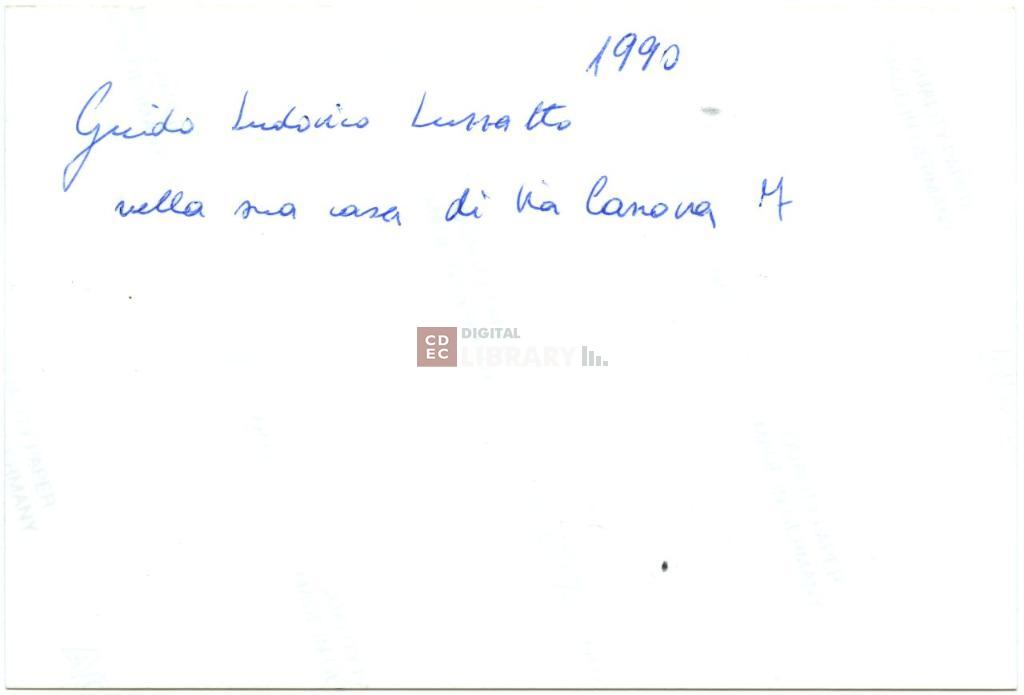 1990
Guido Ludovico Lussatto
nella sua casa di Via Canova
CD
EC
DIGITAL
LIBRARY
PAPER